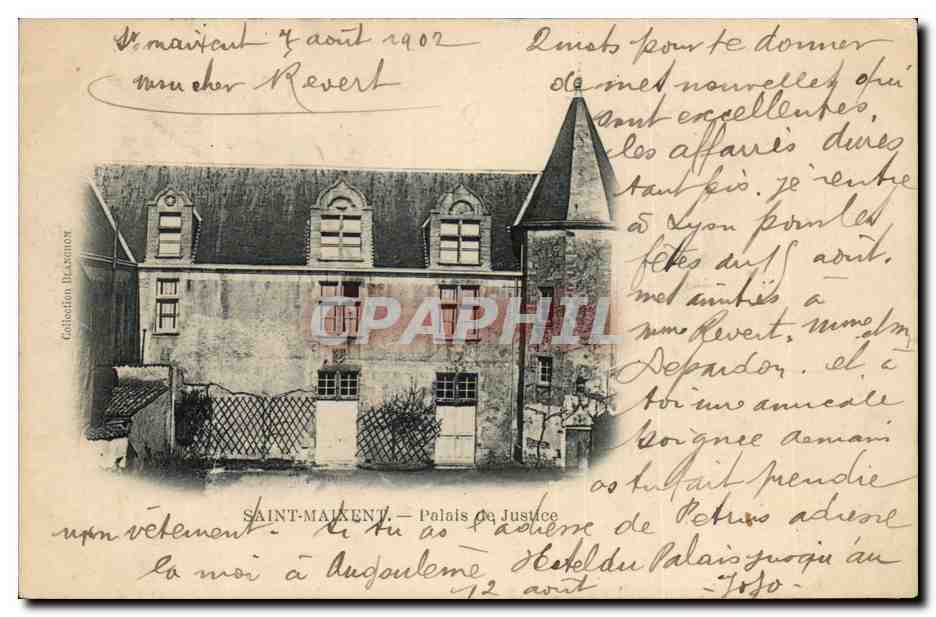 St maixent 7 août 1902
mon cher Revert
2 mots pour te donner
de mes nouvelles qui
sont excellentes,
les affaires dures
tant pis. je rentre
à Lyon pour les
fêtes du 15 août.
mes amitiés à
mme Revert, mme & mr
Depardon. et à
toi une amicale
poignee de main
as tu fait prendre
mon vêtement. Si tu as l'adresse de Petrus adresse
la moi à Angoulème Hotel du Palais jusqu'au
12 août - JoJo -
SAINT-MAIXENT. — Palais de Justice
Collection BLANCHON.
CPAPHIL